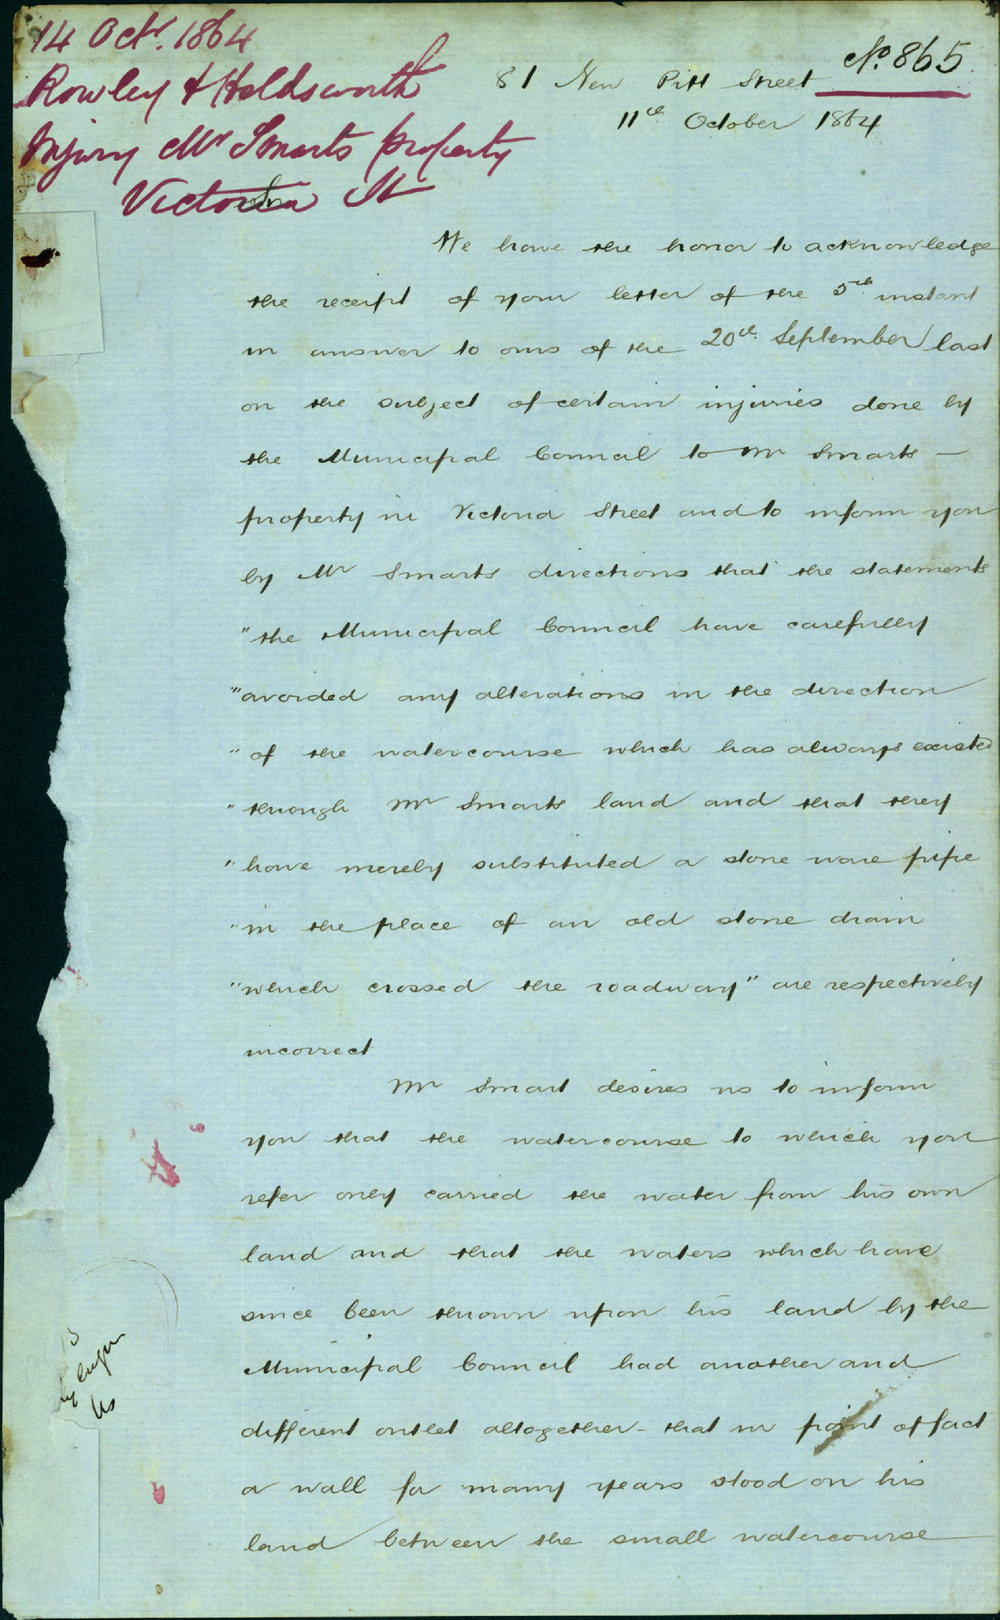 14 Octr. 1864
Rowley & Holdsworth
Injury Mr Smarts property
Victoria St
No. 865
81 New Pitt Street
11th October 1864
We have the honor to acknowledge
the receipt of your letter of the 5th instant
in answer to ours of the 20th September last
on the subject of certain injuries done by
the Municipal Council to Mr Smarts –
property in Victoria Street and to inform you
by Mr Smarts directions that the statements
"the Municipal Council have carefully
"avoided any alterations in the direction
"of the watercourse which has always existed
"through Mr Smarts land and that they
"have merely substituted a stone ware pipe
"in the place of an old stone drain
"which crossed the roadway" are respectively
incorrect
Mr Smart desires us to inform
you that the watercourse to which you
refer only carried the water from his own
land and that the waters which have
since been thrown upon his land by the
Municipal Council had another and
different outlet altogether – that in point of fact
a wall for many years stood on his
land between the small watercourse